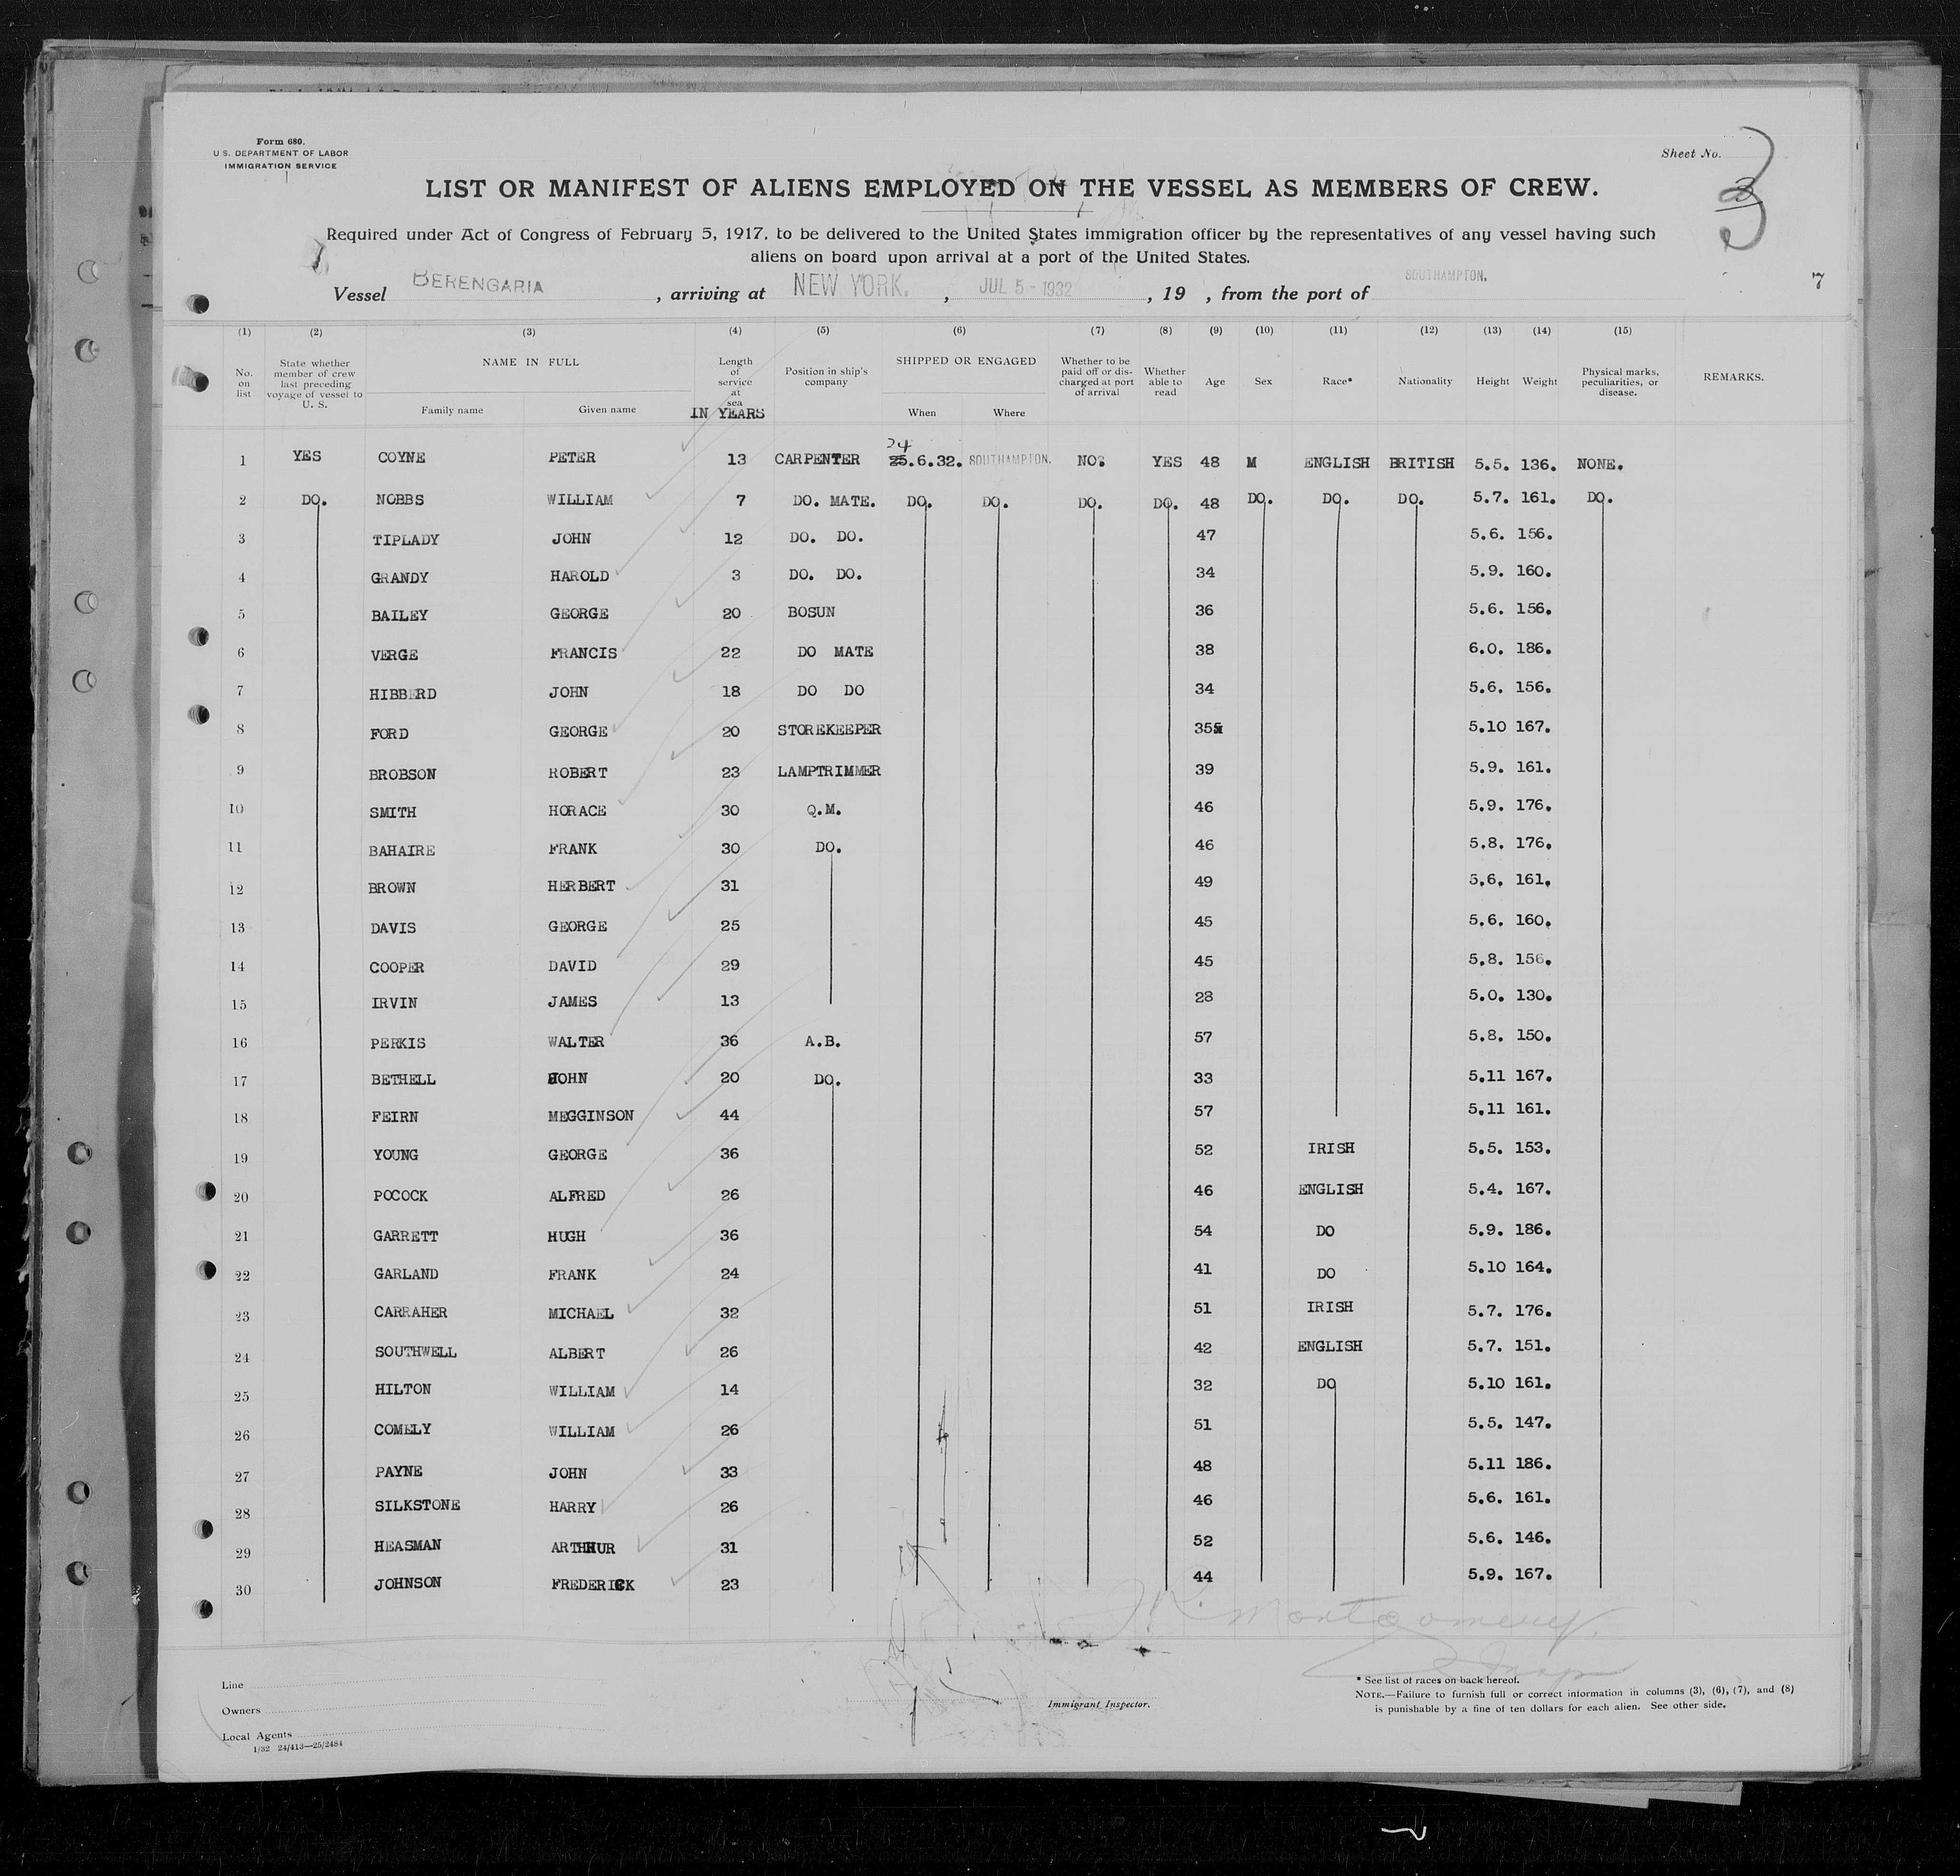 Form 680.
U. S. DEPARTMENT OF LABOR
IMMIGRATION SERVICE
Sheet No.
3
LIST OR MANIFEST OF ALIENS EMPLOYED ON THE VESSEL AS MEMBERS OF CREW.
Required under Act of Congress of February 5, 1917, to be delivered to the United States immigration officer by the representatives of any vessel having such
aliens on board upon arrival at a port of the United States.
Vessel BERENGARIA, arriving at NEW YORK., JUL 5 - 1932, 19 , from the port of SOUTHAMPTON.
7
(1) (2) (3) (4) (5) (6) (7) (8) (9) (10) (11) (12) (13) (14) (15)
No. on list State whether member of crew last preceding voyage of vessel to U. S. NAME IN FULL Family name Given name Length of service at sea IN YEARS Position in ship's company SHIPPED OR ENGAGED When Where Whether to be paid off or discharged at port of arrival Whether able to read Age Sex Race* Nationality Height Weight Physical marks, peculiarities, or disease. REMARKS.
24
1 YES COYNE PETER 13 CARPENTER 25.6.32. SOUTHAMPTON. NO. YES 48 M ENGLISH BRITISH 5.5. 136. NONE.
2 DO. NOBBS WILLIAM 7 DO. MATE. DO. DO. DO. DO. 48 DO. DO. DO. 5.7. 161. DO.
3 TIPLADY JOHN 12 DO. DO. 47 5.6. 156.
4 GRANDY HAROLD 3 DO. DO. 34 5.9. 160.
5 BAILEY GEORGE 20 BOSUN 36 5.6. 156.
6 VERGE FRANCIS 22 DO MATE 38 6.0. 186.
7 HIBBERD JOHN 18 DO DO 34 5.6. 156.
8 FORD GEORGE 20 STOREKEEPER 35 5.10 167.
9 BROBSON ROBERT 23 LAMPTRIMMER 39 5.9. 161.
10 SMITH HORACE 30 Q.M. 46 5.9. 176.
11 BAHAIRE FRANK 30 DO. 46 5.8. 176.
12 BROWN HERBERT 31 49 5.6. 161.
13 DAVIS GEORGE 25 45 5.6. 160.
14 COOPER DAVID 29 45 5.8. 156.
15 IRVIN JAMES 13 28 5.0. 130.
16 PERKIS WALTER 36 A.B. 57 5.8. 150.
17 BETHELL JOHN 20 DO. 33 5.11 167.
18 FEIRN MEGGINSON 44 57 5.11 161.
19 YOUNG GEORGE 36 52 IRISH 5.5. 153.
20 POCOCK ALFRED 26 46 ENGLISH 5.4. 167.
21 GARRETT HUGH 36 54 DO 5.9. 186.
22 GARLAND FRANK 24 41 DO 5.10 164.
23 CARRAHER MICHAEL 32 51 IRISH 5.7. 176.
24 SOUTHWELL ALBERT 26 42 ENGLISH 5.7. 151.
25 HILTON WILLIAM 14 32 DO 5.10 161.
26 COMELY WILLIAM 26 51 5.5. 147.
27 PAYNE JOHN 33 48 5.11 186.
28 SILKSTONE HARRY 26 46 5.6. 161.
29 HEASMAN ARTHUR 31 52 5.6. 146.
30 JOHNSON FREDERICK 23 44 5.9. 167.
Montgomery
Insp
Line
Owners
Local Agents
1/32 24/413—25/2484
Immigrant Inspector.
* See list of races on back hereof.
NOTE.—Failure to furnish full or correct information in columns (3), (6), (7), and (8)
is punishable by a fine of ten dollars for each alien. See other side.